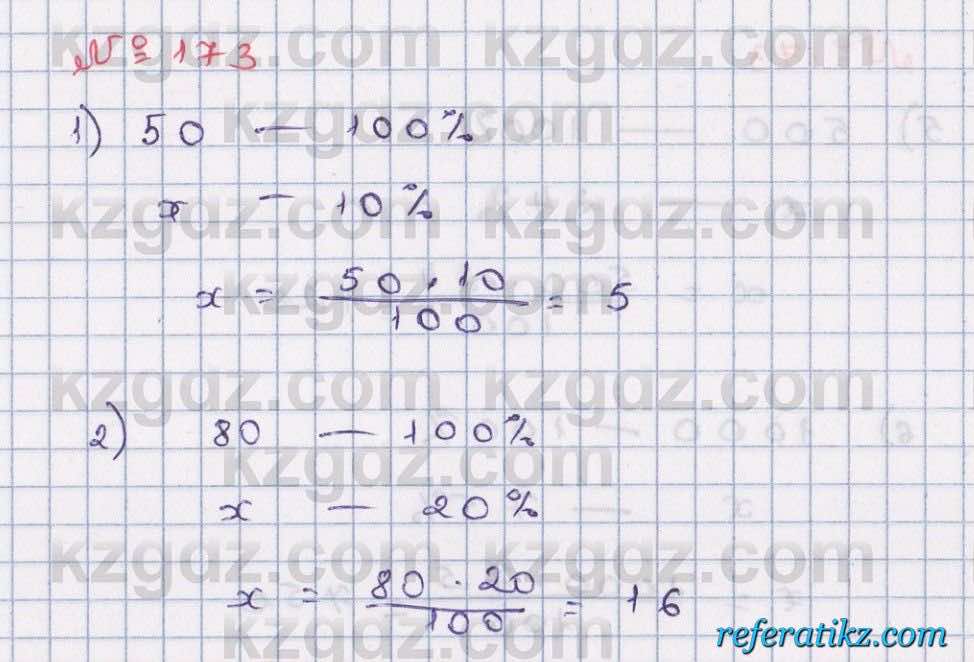 № 173
1) 50 — 100%
x — 10%
x = 50 · 10 / 100 = 5
2) 80 — 100%
x — 20%
x = 80 · 20 / 100 = 16
kzgdz.com kzgdz.com
kzgdz.com
kzgdz.com kzgdz.com
kzgdz.com
kzgdz.com kzgdz.com
kzgdz.com
kzgdz.com kzgdz.com
kzgdz.com
referatikz.com